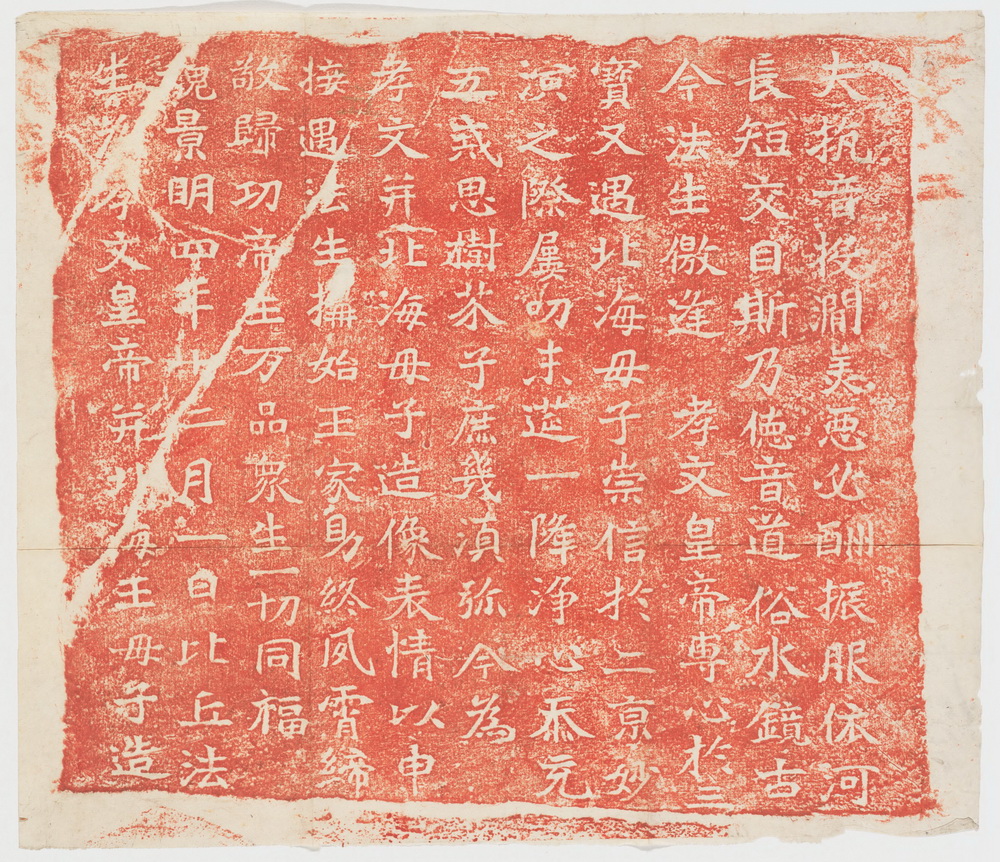 夫抗音投澗美惡必酬振服依河
長短交自斯乃德音道俗水鏡古
今法生儌逢 孝文皇帝專心於三
寶又遇北海母子崇信於二京妙
演之際屢叨末筵一降淨心忝充
五戒思樹芥子庶幾須弥今為
孝文并北海母子造像表情以申
接遇法生構始王家助終夙霄締
敬歸功帝王万品眾生一切同福
魏景明四年十二月一日比丘法
生為孝文皇帝并北海王母子造